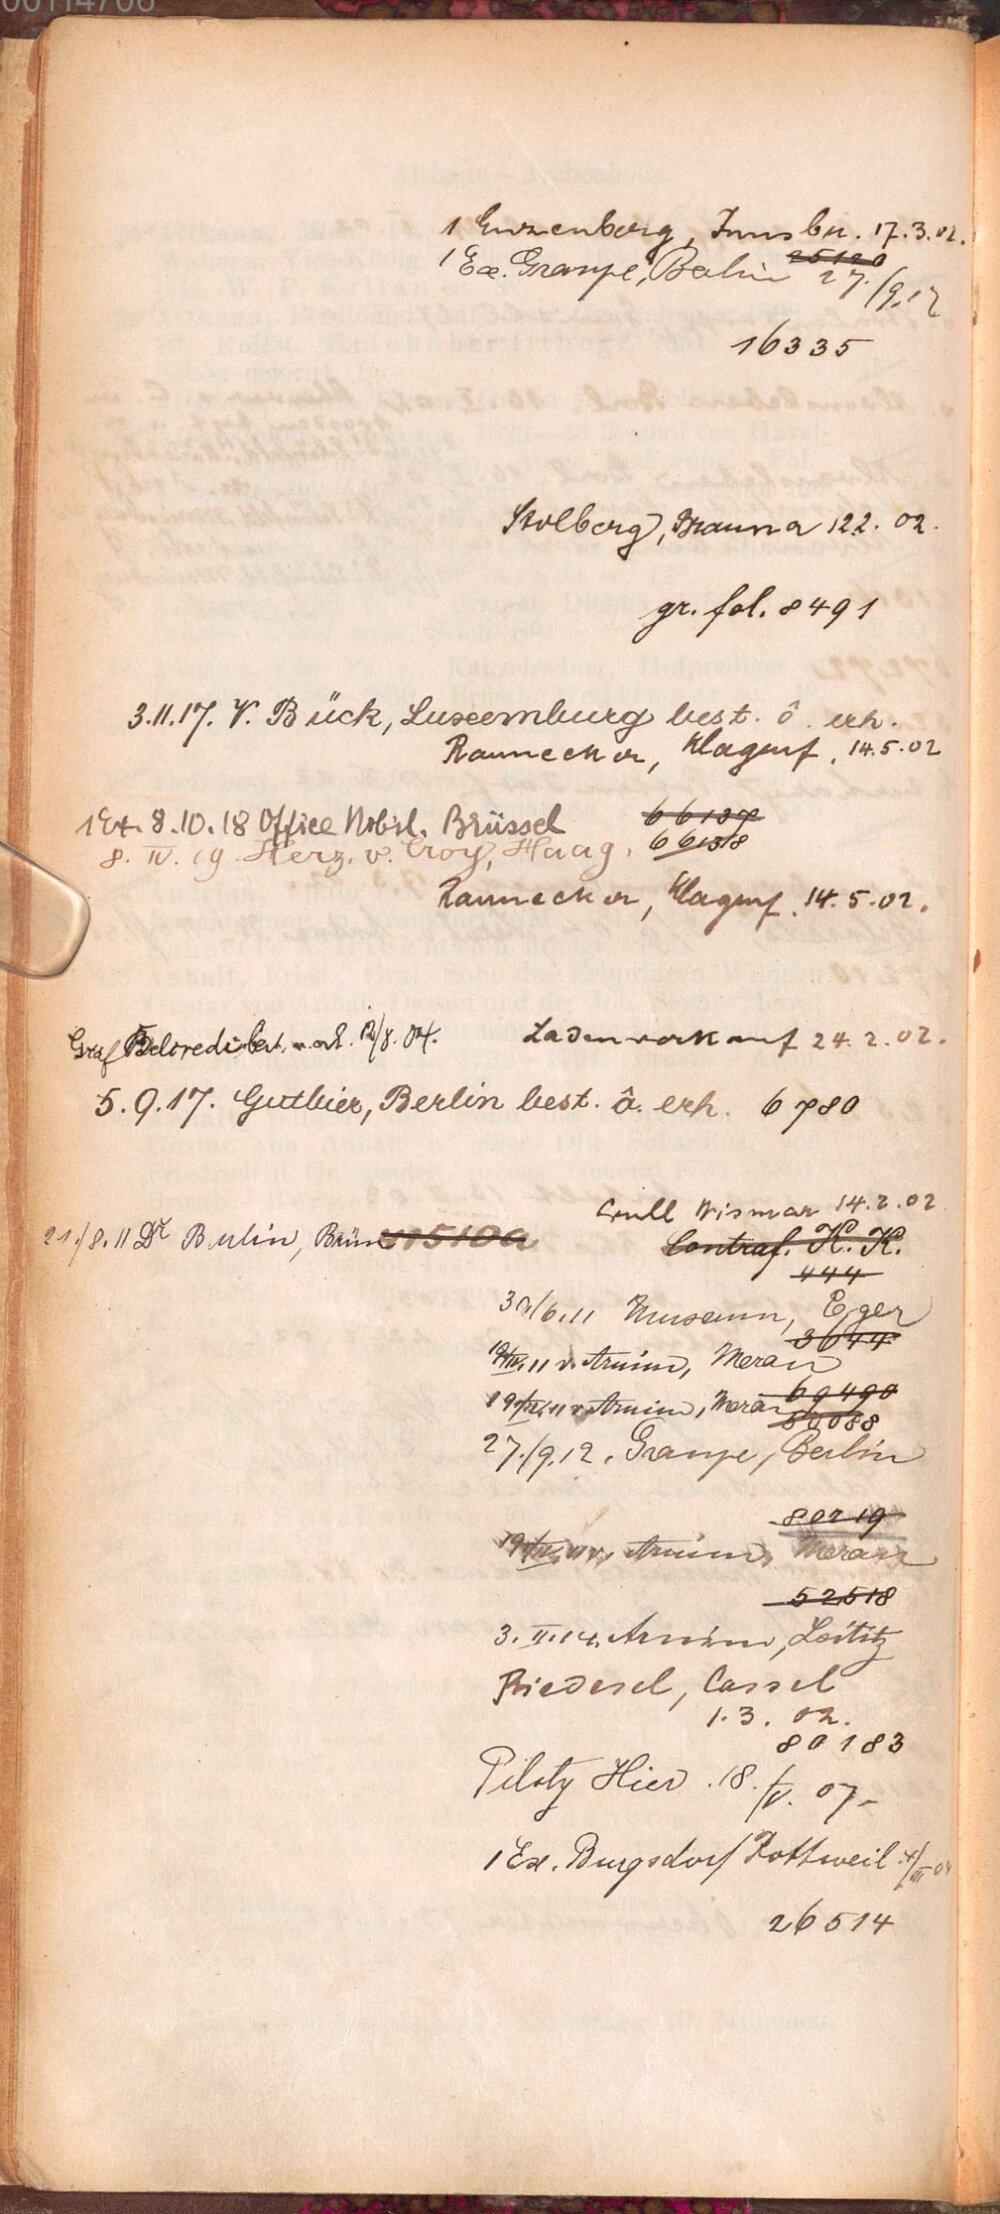 00114706
1 Enzenberg, Innsbr. 17.3.02.
25120
1 Ex. Grampe, Berlin 27./9.12
16335
Stolberg, Brauna 12.2.02.
gr. fol. 8491
3.11.17. V. Bück, Luxemburg best. ô. erh.
Raunecker, Klagenf. 14.5.02
1 Ex. 8.10.18 Office Nobil. Brüssel
66137
8. IV. 19. Herz. v. Croy, Haag.
66138
Raunecker, Klagenf. 14.5.02.
Graf Belcredi best. 12/8.04.
Ladenverkauf 24.2.02.
5.9.17. Guthier, Berlin best. ô. erh. 6780
Crull Wismar 14.2.02
21./8.11 Dr
15510a
Contraf. K. K.
444
30/6.11 Museum, Eger
3644
19/IV.11 v. Arnim, Meran
69490
19/IV.11 v. Arnim, Meran
80088
27./9.12. Grampe, Berlin
80219
19/IV.11 v. Arnim, Meran
52518
3. II. 14. Arnim,
Riedesel, Cassel
1.3.02.
80183
Piloty Hier. 18./V. 07.
1 Ex. Burgsdorf Rottweil 4/III 04
26514